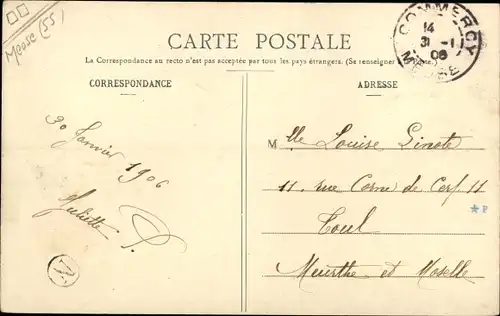 Meuse (55)
CARTE POSTALE
La Correspondance au recto n'est pas acceptée par tous les pays étrangers. (Se renseigner à la Poste.)
CORRESPONDANCE
ADRESSE
COMMERCY
14
31 -1
06
MEUSE
30 Janvier 1906
Juliette P.
Mlle Louise Sinote
11. rue Corne de Cerf. 11
Toul
Meurthe et Moselle
* P